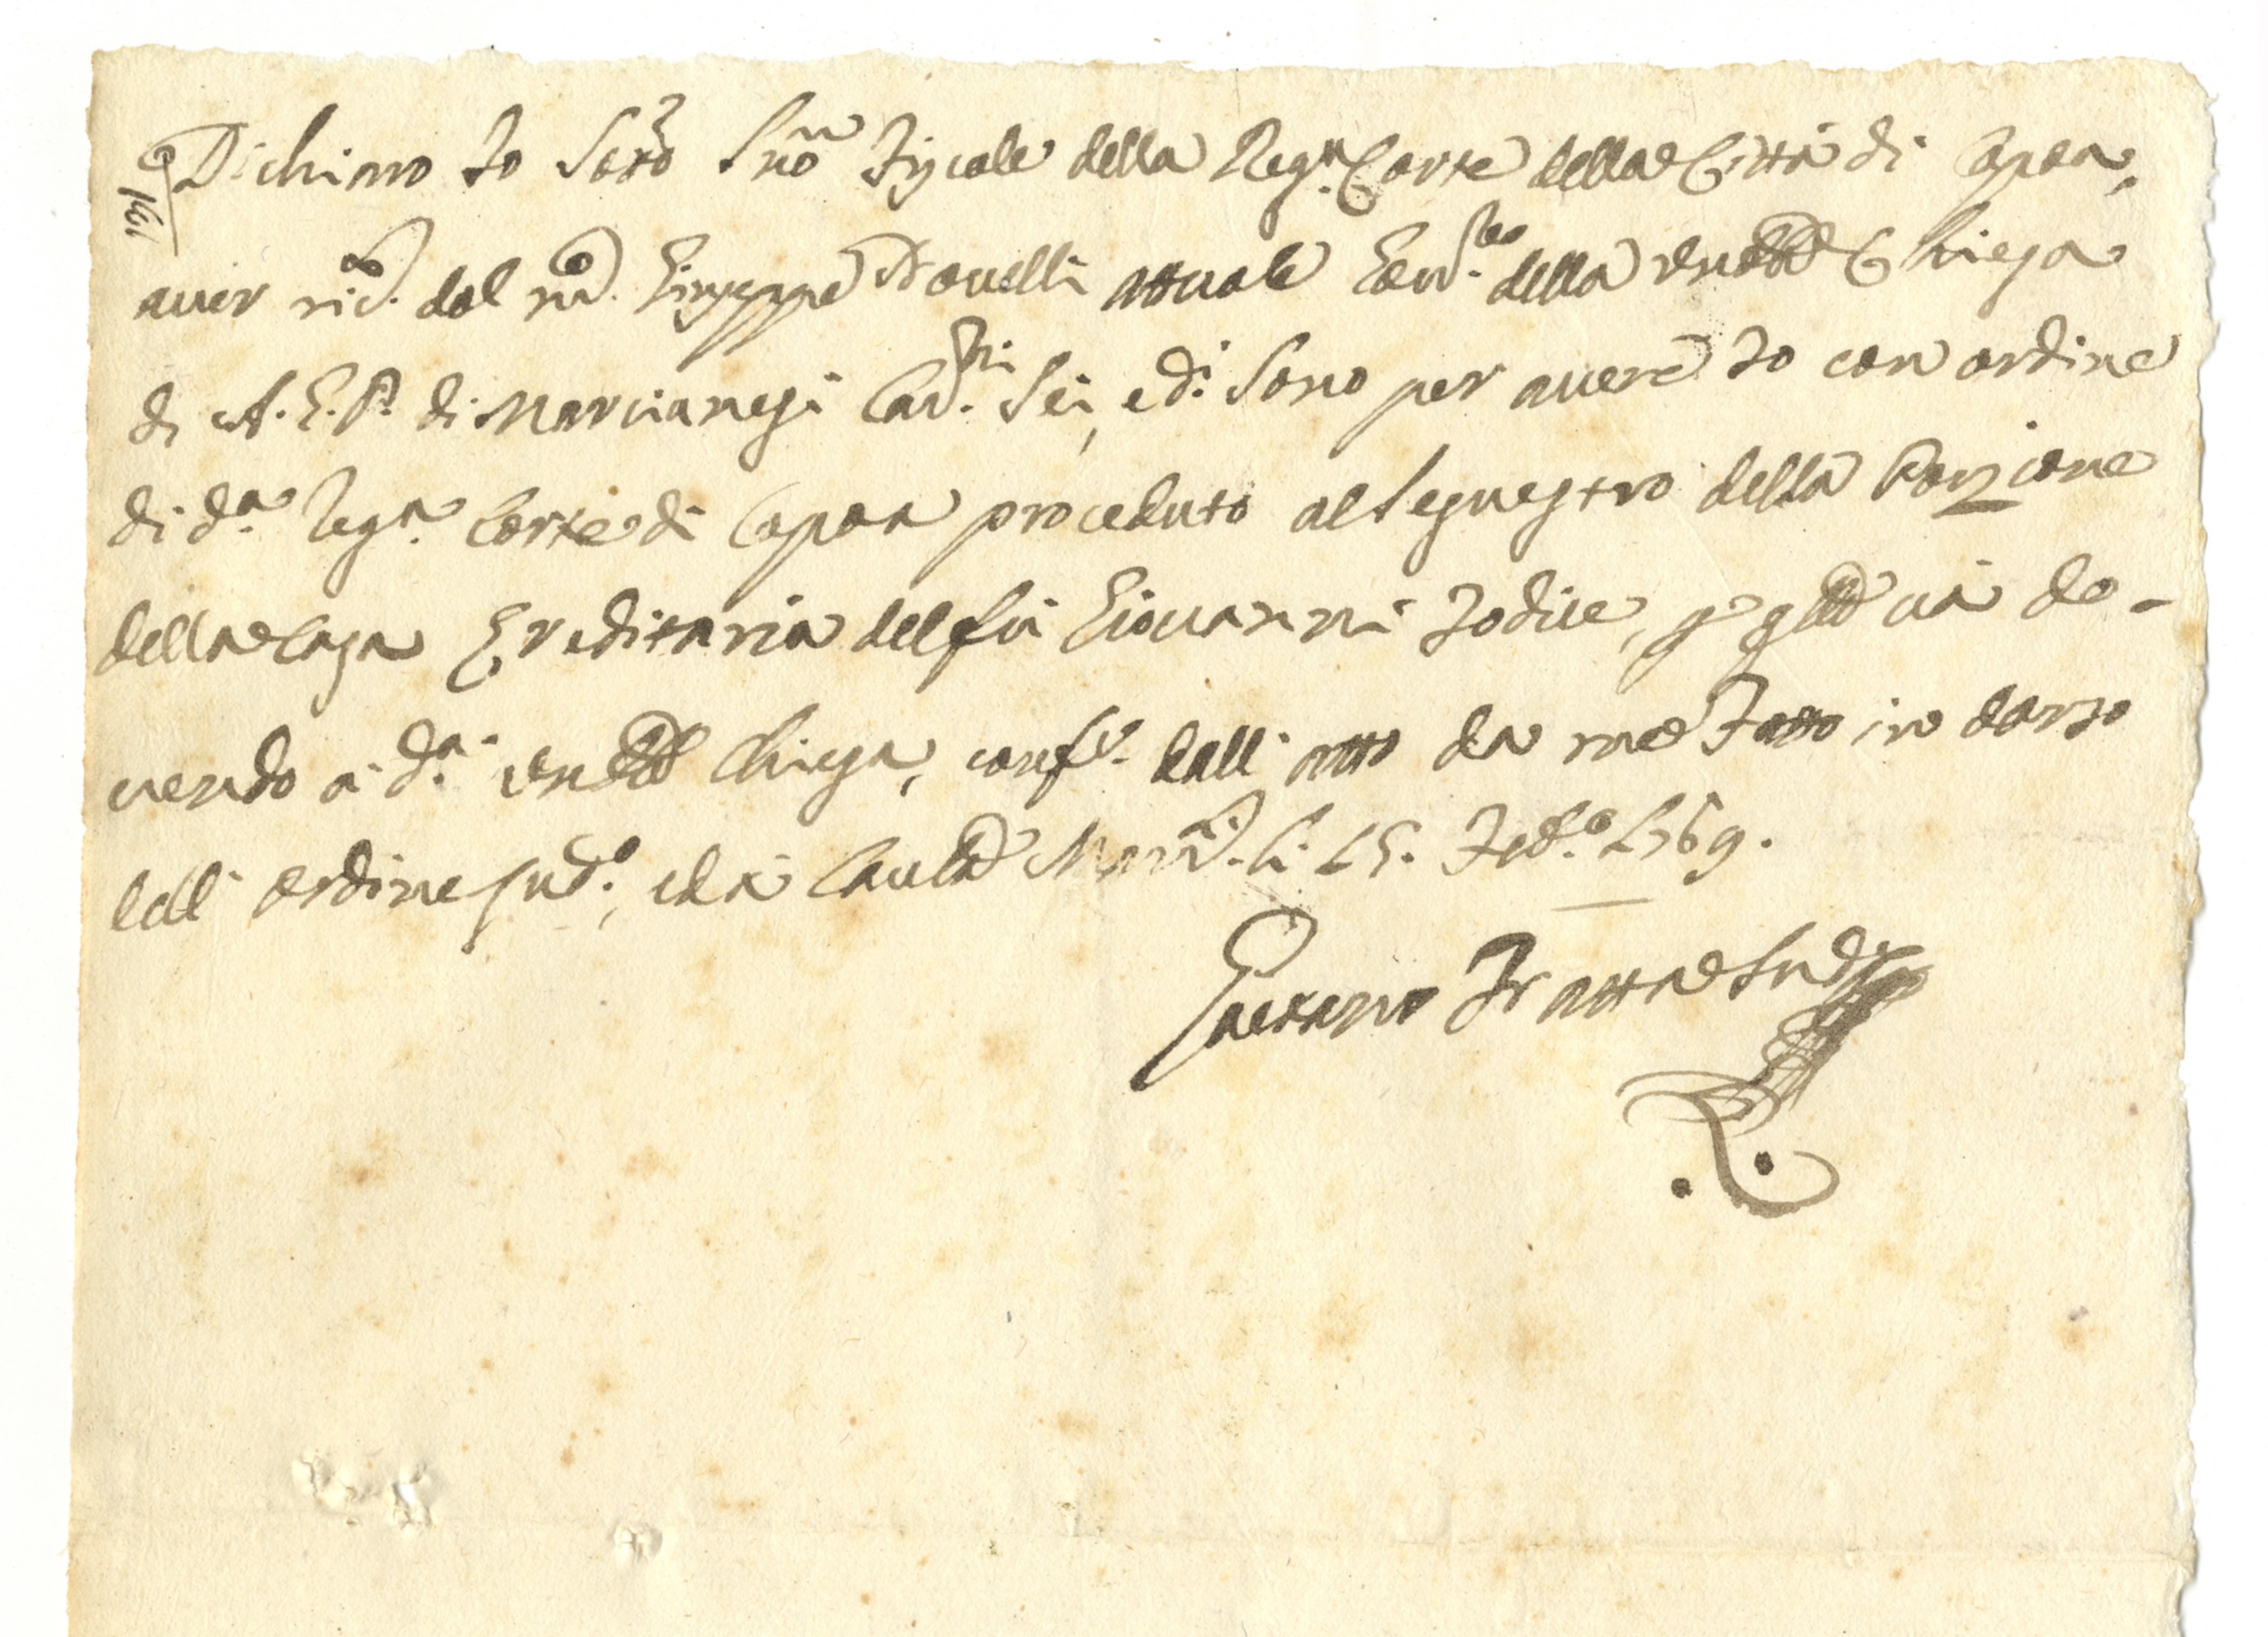 Dichiaro Io Sotto Scno Fiscale della Reg.a Corte della Città di Capoa,
aver ric.to dal m.co Giuseppe Novelli attuale Econ.mo della Chiesa
di A. G. P. di Marcianesi Car.ni Sei, e di Sono per avere Io con ordine
di d.a Reg.a Corte di Capoa proceduto al Sequestro della Porzione
della Casa Ereditaria del fù Giovanni Iodice, p và do-
vendo à d.a Chiesa, conf.e dall' atto da me Fatto in dorso
dell' ordine sud.o, ed à Caut.a Marc.si li 15. Feb.o 1769.
Gaetano Fratta Sud.o